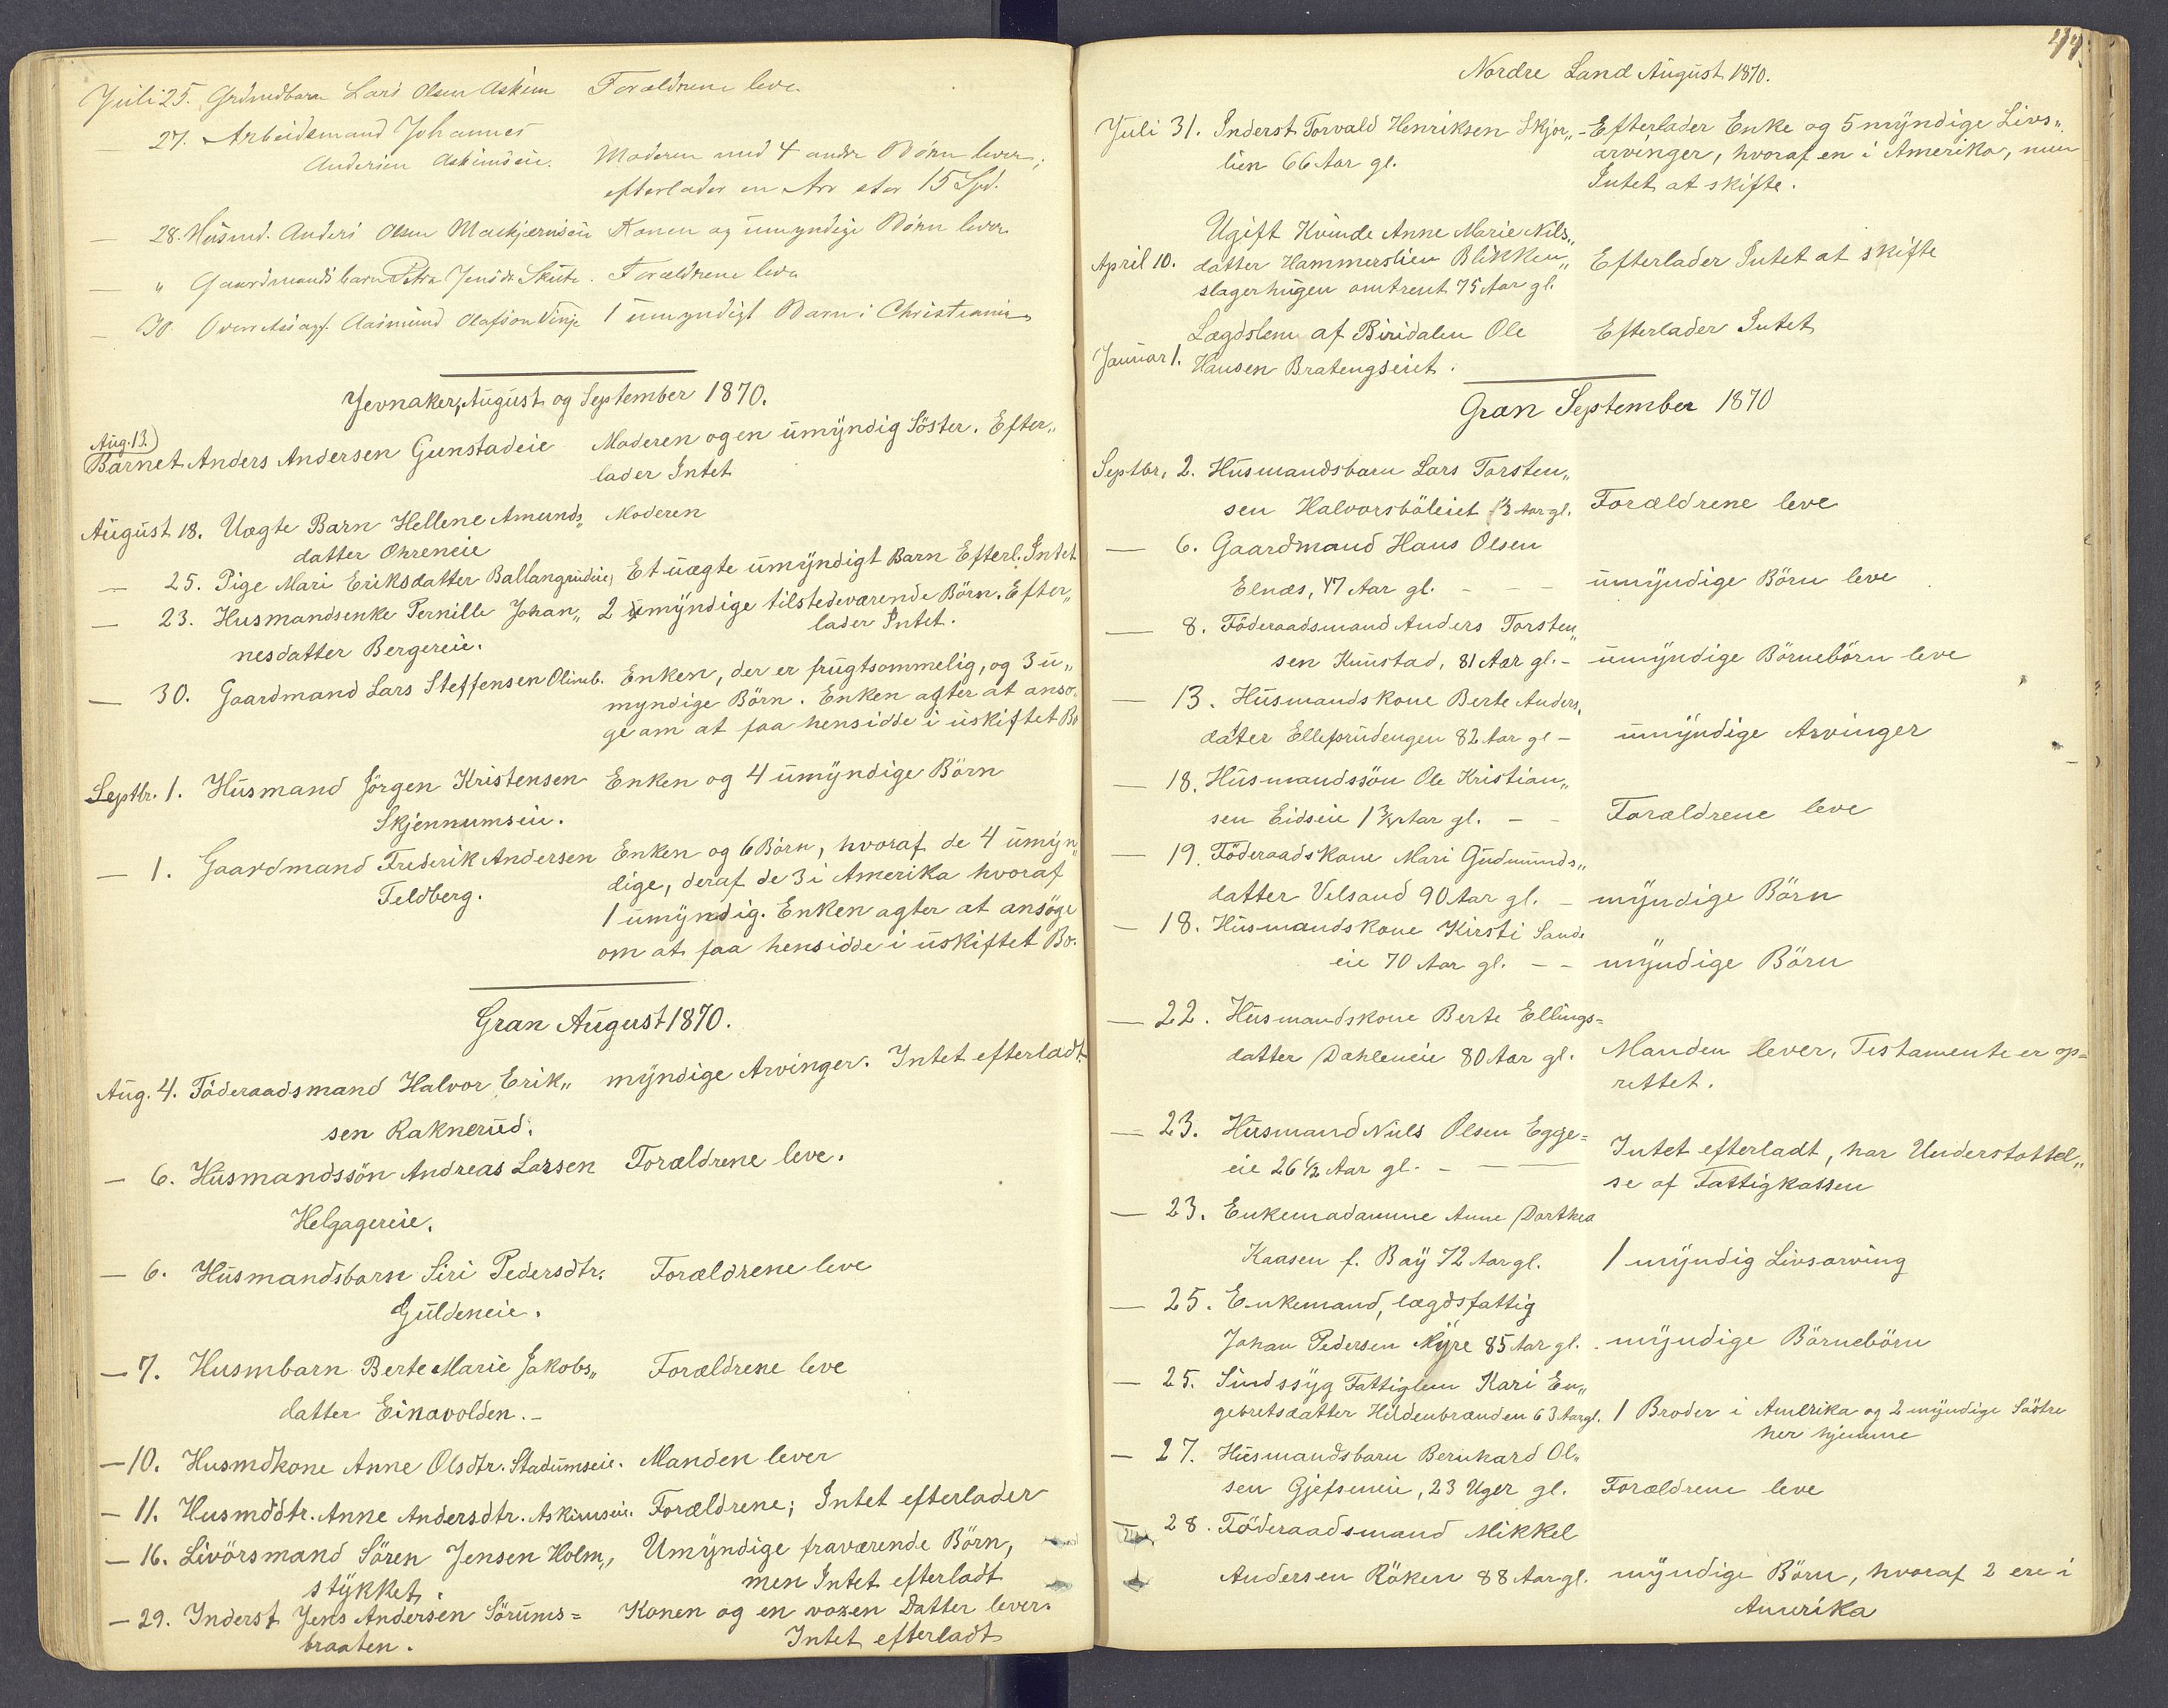 Juli 25. Grdmdbarn Lars Olsen Askim Forældrene leve.
— 27. Arbeidsmand Johannes
Andersen Askimseie. Moderen med 4 andre Börn lever;
efterlader en Arv stor 15 Spd.
— 28. Husmd. Anders Olsen Konen og umyndige Börn lever
— " Gaardmands barn Petra Jensdr. Skute. Forældrene leve
— 30. Aasmund Olafson Vinje 1 umyndigt Barn i Christiania
Jevnaker, August og September 1870.
Aug. 13.)
Barnet Anders Andersen Gunstadeie Moderen og en umyndig Söster. Efter„
lader Intet
August 18. Uægte Barn Hellene Amunds„ Moderen
datter Ohreneie
— 25. Pige Mari Eriksdatter Ballangrudeie, Et uægte umyndigt Barn Efterl. Intet
— 23. Husmandsenke Pernille Johan„ 2 umyndige tilstedeværende Börn. Efter„
lader Intet.
nesdatter Bergereie.
— 30. Gaardmand Lars Steffensen Olimb. Enken, der er frugtsommelig, og 3 u„
myndige Börn. Enken agter at ansö„
ge om at faa hensidde i uskiftet Bo
Septbr. 1. Husmand Jörgen Kristensen Enken og 4 umyndige Börn
Skjennumseie.
— 1. Gaardmand Frederik Andersen Enken og 6 Börn, hvoraf de 4 umyn„
Feldberg. dige, deraf de 3 i Amerika hvoraf
1 umyndig. Enken agter at ansöge
om at faa hensidde i uskiftet Bo.
Gran August 1870.
Aug. 4. Föderaadsmand Halvor Erik„ myndige Arvinger. Intet efterladt.
sen Raknerud.
— 6. Husmandssön Andreas Larsen Forældrene leve.
Helgagereie.
— 6. Husmandsbarn Siri Pedersdtr. Forældrene leve
Guldeneie.
— 7. Husmbarn Berte Marie Jakobs„ Forældrene leve
datter Einavolden. –
— 10. Husmdkone Anne Olsdtr. Stadumseie. Manden lever
— 11. Husmddtr. Anne Andersdtr. Askimseie. Forældrene; Intet efterlader
— 16. Livörsmand Sören Jensen Holm„ Umyndige fraværende Börn,
stykket. men Intet efterladt
— 29. Inderst Jens Andersen Sörums= Konen og en voxen Datter lever.
braaten. Intet efterladt
Nordre Land August 1870.
Juli 31. Inderst Torvald Henriksen Skjor„ – Efterlader Enke og 5 myndige Livs„
lien 66 Aar gl. arvinger, hvoraf en i Amerika, men
Intet at skifte.
Ugift Kvinde Anne Marie Nils„
April 10. datter Hammerslien Blikken„ Efterlader Intet at skifte
slagerhugen omtrent 75 Aar gl.
Lægdslem af Biridalen Ole Efterlader Intet
Januar 1. Hansen Bratengseiet.
Gran September 1870
Septbr. 2. Husmandsbarn Lars Torsten„
sen Halvorsböleiet ½ Aar gl. Forældrene leve
— 6. Gaardmand Hans Olsen
Elnæs, 47 Aar gl. – – – umyndige Börn leve
— 8. Föderaadsmand Anders Torsten„
sen Kunstad, 81 Aar gl. – umyndige Börnebörn leve
— 13. Husmandskone Berte Anders„
datter Elleprudengen 82 Aar gl – umyndige Arvinger
— 18. Husmandssön Ole Kristian„
sen Eidseie 1 ¾ Aar gl. – – Forældrene leve
— 19. Föderaadskone Mari Gudmunds„
datter Velsand 90 Aar gl. – myndige Börn
— 18. Husmandskone Kirsti Sands
eie 70 Aar gl. – – myndige Börn
— 22. Husmandskone Berte Ellings=
datter Dæhleneie 80 Aar gl. Manden lever, Testamente er op=
rettet.
— 23. Husmand Niels Olsen Egge=
eie 26 ½ Aar gl. – — — Intet efterladt, har Understöttel„
se af Fattigkassen
— 23. Enkemadamme Anne Dorthea
Kaasen f. Bay 72 Aar gl. 1 myndig Livsarving
— 25. Enkemand, lægdsfattig
Johan Pedersen Myre 85 Aar gl. . myndige Börnebörn
— 25. Sindssyg Fattiglem Kari En„
gebretsdatter Hildenbrænden 63 Aar gl. 1 Broder i Amerika og 2 myndige Söstre
her hjemme
— 27. Husmandsbarn Bernhard Ol„
sen Gjefseneie, 23 Uger gl. Forældrene leve
— 28. Föderaadsmand Mikkel
Andersen Röken 88 Aar gl. myndige Börn, hvoraf 2 ere i
Amerika